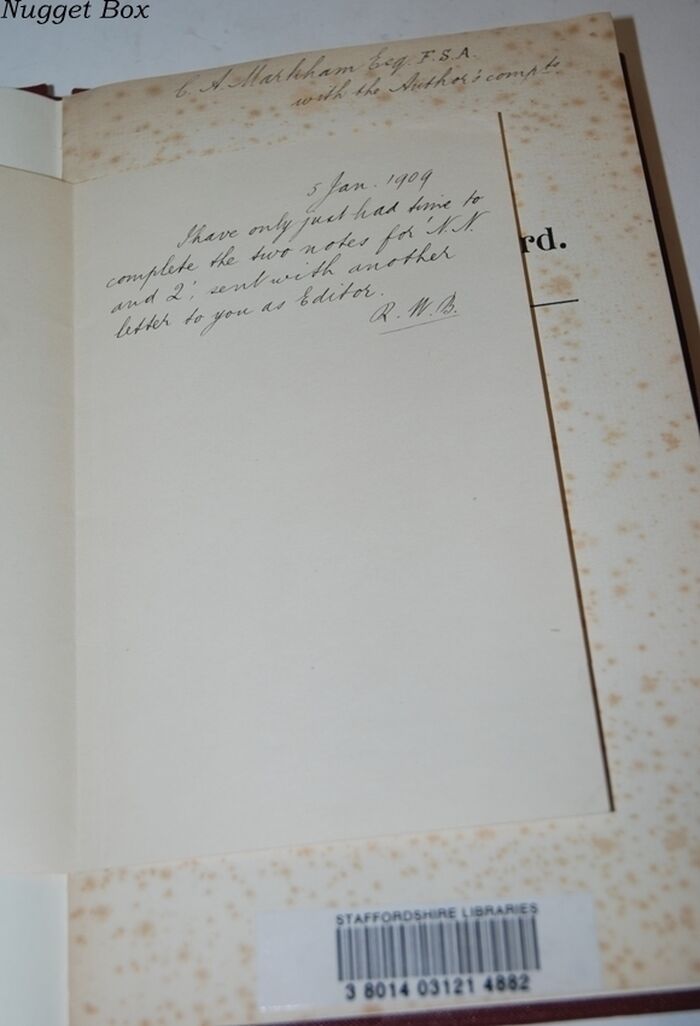 Nugget Box
C. A. Markham Esq. F.S.A.
with the Author's compts.
5 Jan. 1909
I have only just had time to
complete the two notes for 'N.N.
and Q', sent with another
letter to you as Editor.
R. W. B.
rd.
STAFFORDSHIRE LIBRARIES
3 8014 03121 4882